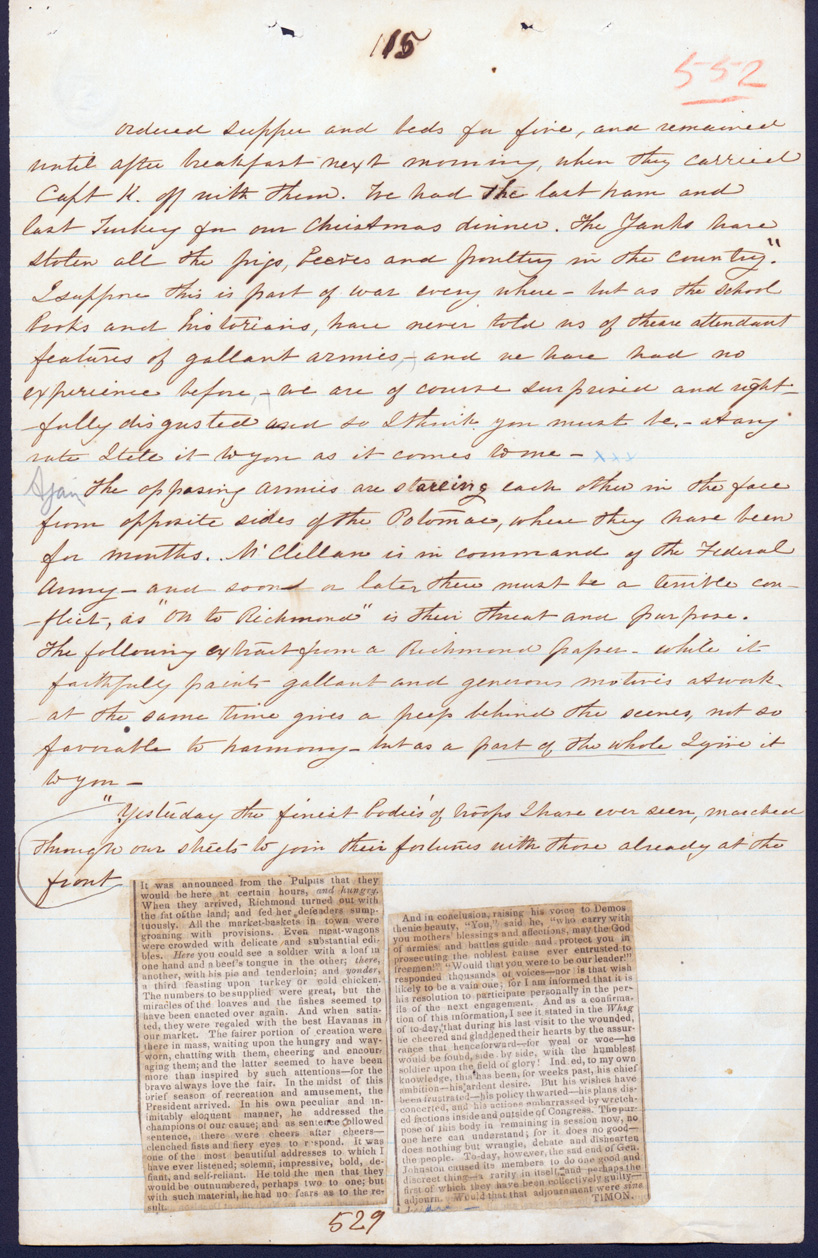 115
552
ordered supper and beds for five, and remained
until after breakfast next morning, when they carried
Capt K. off with them. We had the last ham and
last Turkey for our Christmas dinner. The Yanks have
stolen all the pigs, Beeves and poultry in the country."
I suppose this is part of war every where - but as the school
books and historians, have never told us of these attendant
features of gallant armies, - and we have had no
experience before, - we are of course surprised and right-
-fully disgusted and so I think you must be. - At any
rate I tell it to you as it comes to me -
Again
The opposing armies are stareing each other in the face
from opposite sides of the Potomac, where they have been
for months. McClellan is in command of the Federal
Army - and soon or later there must be a terrible con-
-flict, as "On to Richmond" is their threat and purpose.
The following extract from a Richmond paper - while it
faithfully paints gallant and generous motives at work -
at the same time gives a peep behind the scenes, not so
favorable to harmony - but as a part of the whole I give it
to you -
"Yesterday the finest bodies of troops I have ever seen, marched
through our streets to join their fortunes with those already at the
front
It was announced from the Pulpits that they
would be here at certain hours, and hungry.
When they arrived, Richmond turned out with
the fat of the land; and fed her defenders sump-
tuously. All the market-baskets in town were
groaning with provisions. Even meat-wagons
were crowded with delicate and substantial edi-
bles. Here you could see a soldier with a loaf in
one hand and a beef's tongue in the other; there,
another, with his pie and tenderloin; and yonder,
a third feasting upon turkey or cold chicken.
The numbers to be supplied were great, but the
miracles of the loaves and the fishes seemed to
have been enacted over again. And when satia-
ted, they were regaled with the best Havanas in
our market. The fairer portion of creation were
there in mass, waiting upon the hungry and way-
worn, chatting with them, cheering and encour-
aging them; and the latter seemed to have been
more than inspired by such attentions—for the
brave always love the fair. In the midst of this
brief season of recreation and amusement, the
President arrived. In his own peculiar and in-
imitably eloquent manner, he addressed the
champions of our cause; and as sentence followed
sentence, there were cheers after cheers—
clenched fists and fiery eyes to respond. It was
one of the most beautiful addresses to which I
have ever listened; solemn, impressive, bold, de-
fiant, and self-reliant. He told the men that they
would be outnumbered, perhaps two to one; but
with such material, he had no fears as to the re-
sult.
And in conclusion, raising his voice to Demos
thenic beauty, "You," said he, "who carry with
you mothers' blessings and affections, may the God
of armies and battles guide and protect you in
prosecuting the noblest cause ever entrusted to
freemen!" "Would that you were to be our leader!"
responded thousands of voices—nor is that wish
likely to be a vain one; for I am informed that it is
his resolution to participate personally in the per-
ils of the next engagement. And as a confirma-
tion of this information, I see it stated in the Whig
of to-day, that during his last visit to the wounded,
he cheered and gladdened their hearts by the assur-
rance that henceforward—for weal or woe—he
would be found, side by side, with the humblest
soldier upon the field of glory! Indeed, to my own
knowledge, this has been, for weeks past, his chief
ambition—his ardent desire. But his wishes have
been frustrated—his policy thwarted—his plans dis-
concerted, and his actions embarrassed by wretch-
ed factions inside and outside of Congress. The pur-
pose of this body in remaining in session now, no
one here can understand; for it does no good—
does nothing but wrangle, debate and dishearten
the people. To-day, however, the sad end of Gen.
Johnston caused its members to do one good and
discreet thing—a rarity in itself, and perhaps the
first of which they have been collectively guilty—
adjourn. Would that that adjournment were sine
TIMON.
529